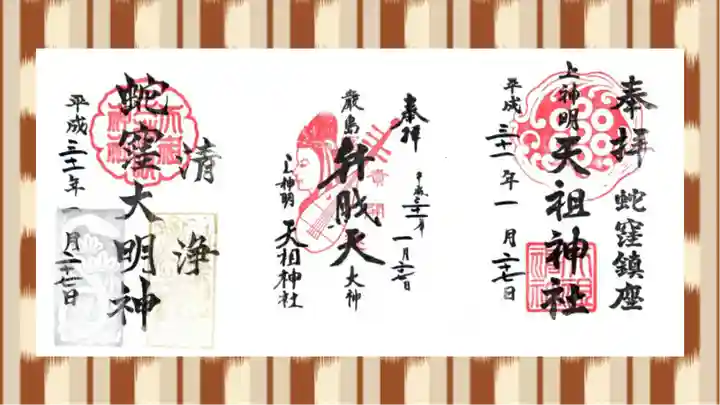 奉拝
蛇窪鎮座
上神明
天祖神社
平成三十一年一月二十七日
奉拝
平成三十一年一月二十七日
厳島
弁財天
大神
上神明
天祖神社
清浄
蛇窪大明神
平成三十一年一月二十七日